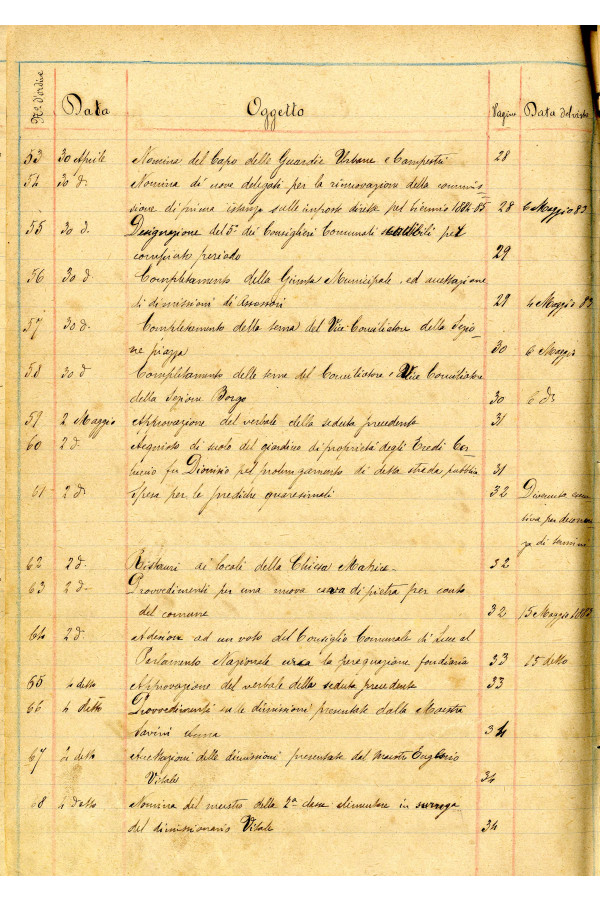 N.° d'ordine Data Oggetto Pagine Data del visto
53 30 Aprile Nomina del Capo delle Guardie Urbane e Campestri 28
54 30 d. Nomina di nove delegati per la rinnovazione della commis-
sione di prima istanza sulle imposte dirette pel biennio 1884-85 28 6 Maggio 83
55 30 d. Designazione del 5° dei Consiglieri Comunali pel
periodo 29
56 30 d. Completamento della Giunta Municipale, ed accettazione
di dimissioni di assessori 29 4 Maggio 83
57 30 d. Completamento della terna del Vice-Conciliatore della Sezio-
ne piazza 30 6 Maggio
58 30 d Completamento delle terne del Conciliatore e Vice Conciliatore
della Sezione Borgo 30 6 d.
59 2 Maggio Approvazione del verbale della seduta precedente 31
60 2 d. Acquisto di suolo del giardino di proprietà degli Eredi
fu Dionisio pel prolungamento di detta strada pubblica 31
61 2 d. Spesa per le prediche quaresimali 32 Divenuta esecu-
tiva per decorren-
za di termini
62 2 d. Ristauri ai locali della Chiesa Matrice 32
63 2 d. Provvedimenti per una nuova cava di pietra per conto
del comune 32 15 Maggio 1883
64 2 d. Adesione ad un voto del Consiglio Comunale di al
Parlamento Nazionale circa la perequazione fondiaria 33 15 detto
65 4 detto Approvazione del verbale della seduta precedente 33
66 4 detto Provvedimenti sulle dimissioni presentate dalla Maestra
Savini 34
67 4 detto Accettazioni delle dimissioni presentate dal maestro
Vitale 34
68 4 detto Nomina del maestro della 2ª classe elementare in surroga
del dimissionario Vitale 34